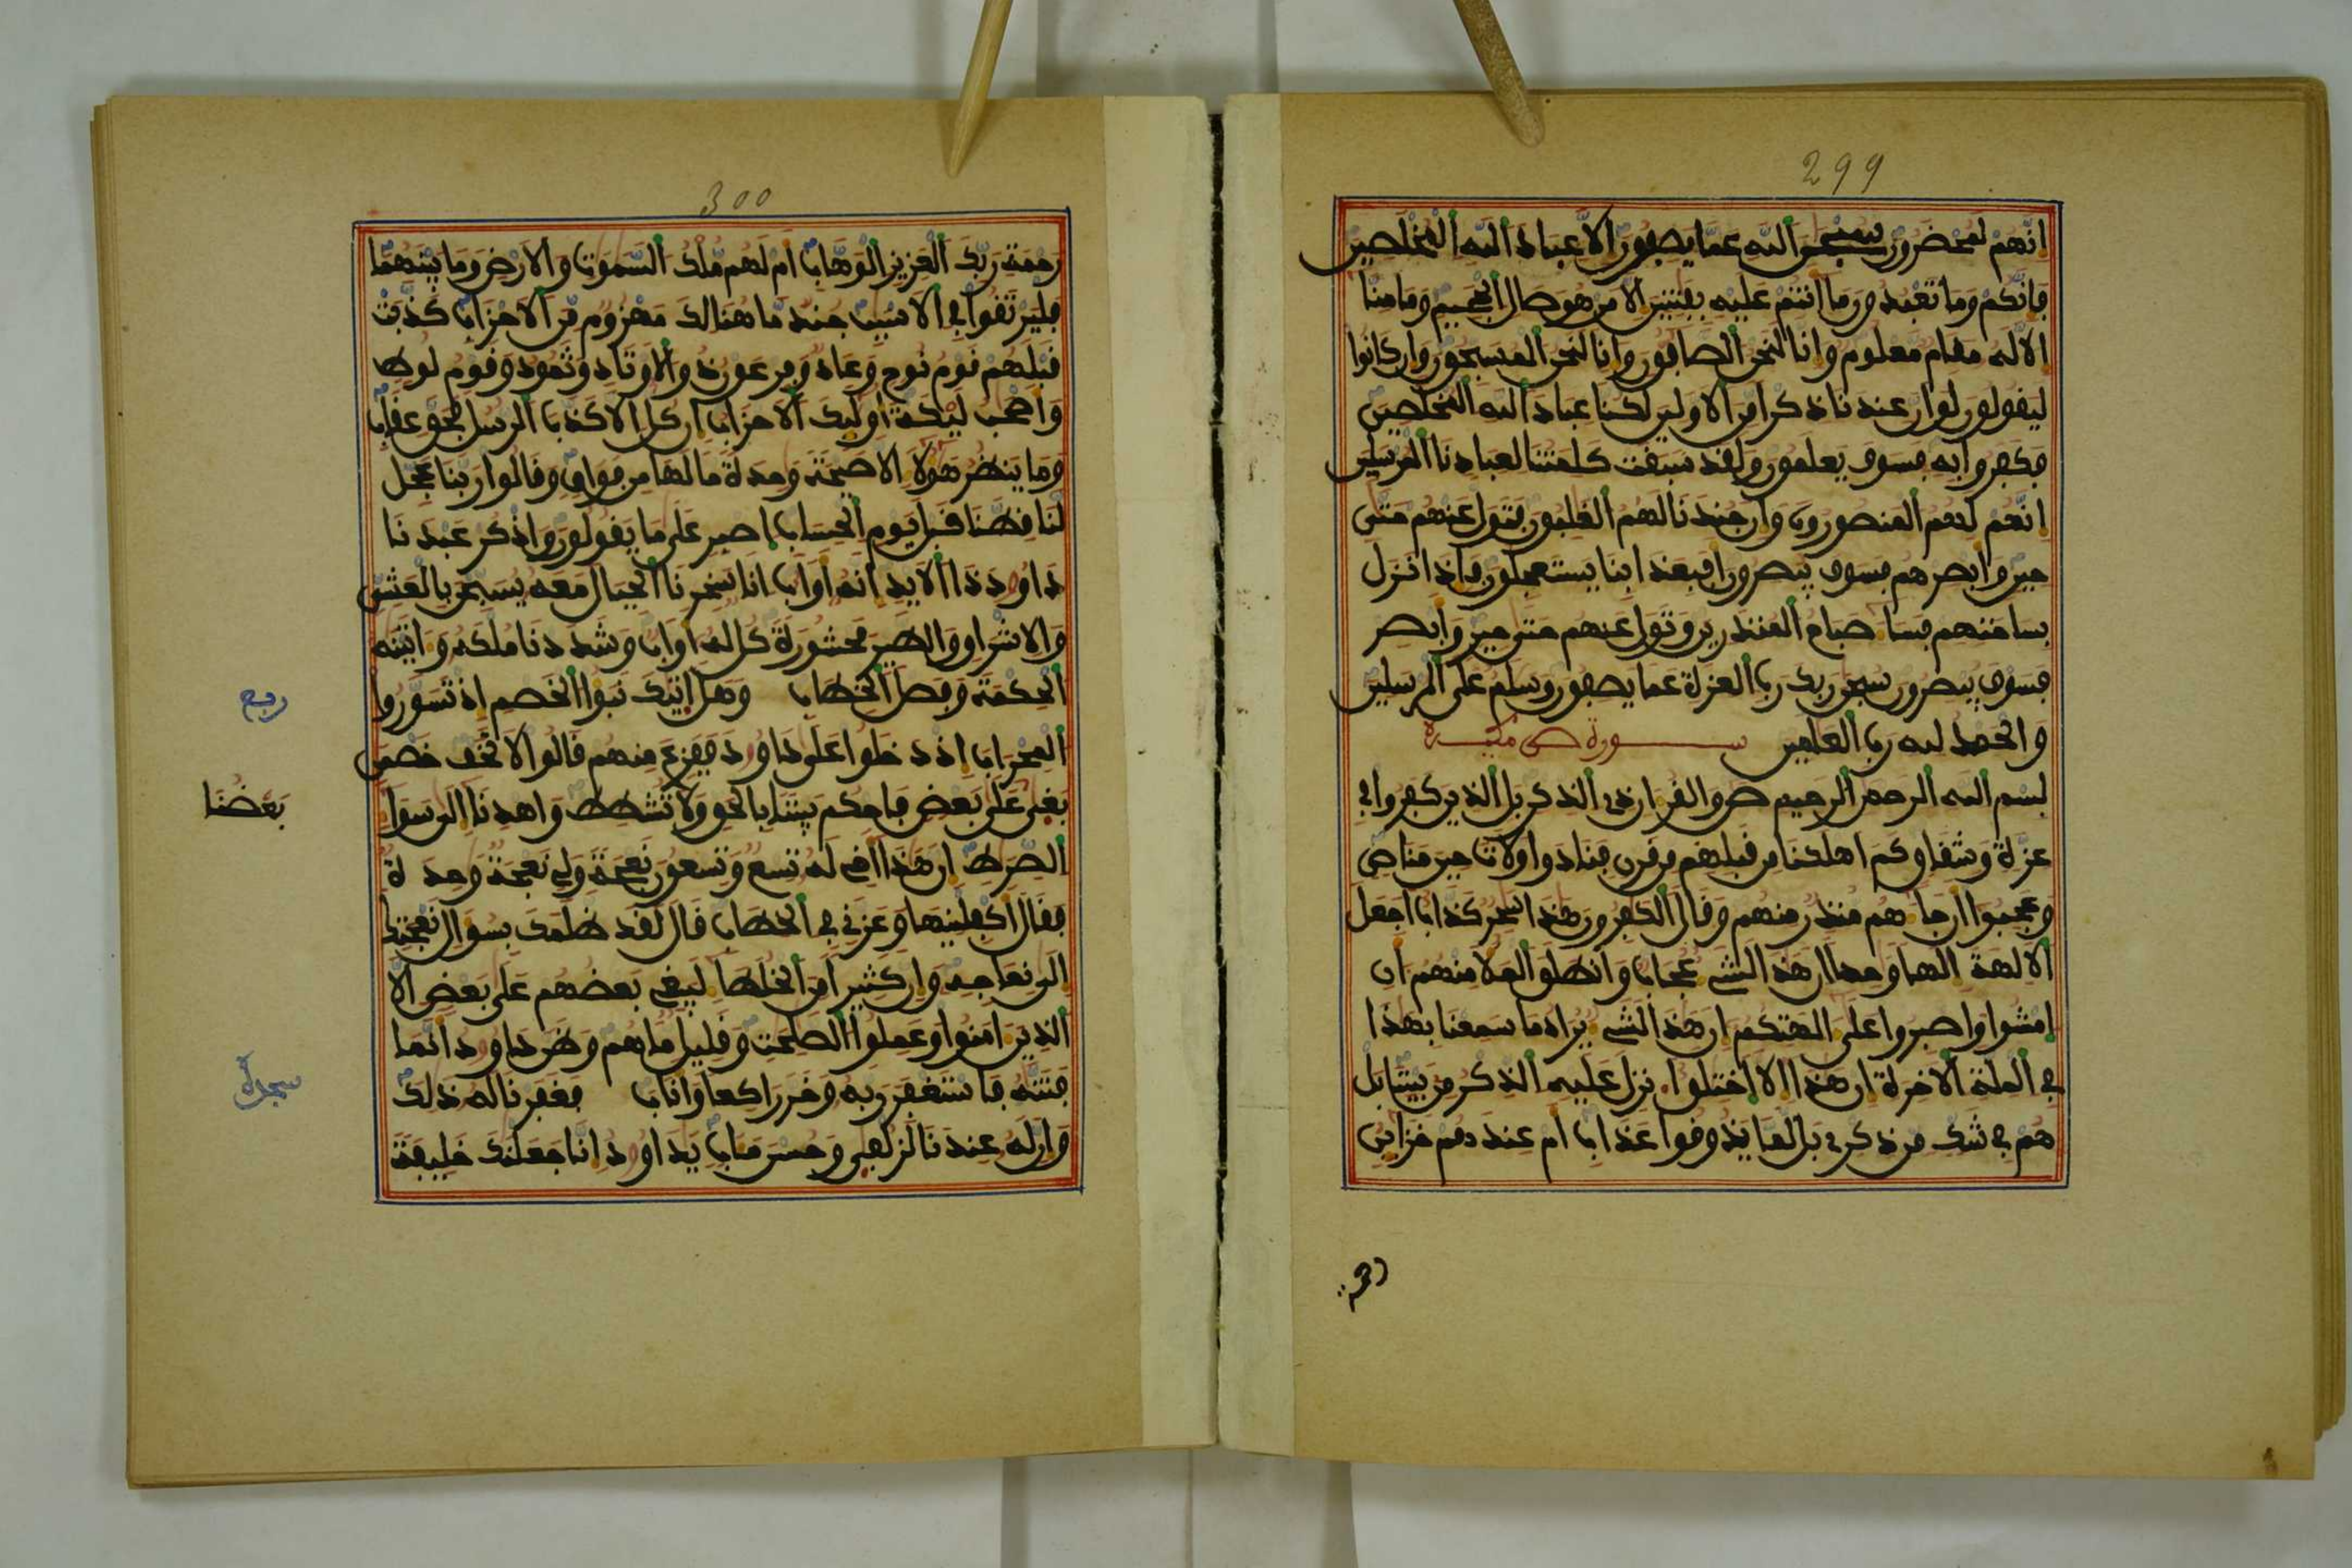 299
انهم لمحضرون سبحن الله عما يصفون الا عباد الله المخلصين
فانكم وما تعبدون ما انتم عليه بفتنين الا من هو صال الجحيم وما منا
الا له مقام معلوم وانا لنحن الصافون وانا لنحن المسبحون وان كانوا
ليقولون لو ان عندنا ذكرا من الاولين لكنا عباد الله المخلصين
فكفروا به فسوف يعلمون ولقد سبقت كلمتنا لعبادنا المرسلين
انهم لهم المنصورون وان جندنا لهم الغلبون فتول عنهم حتى
حين وابصرهم فسوف يبصرون افبعذابنا يستعجلون فاذا نزل
بساحتهم فساء صباح المنذرين وتول عنهم حتى حين وابصر
فسوف يبصرون سبحن ربك رب العزة عما يصفون وسلم على المرسلين
والحمد لله رب العلمين سورة ص مكية
بسم الله الرحمن الرحيم ص والقران ذي الذكر بل الذين كفروا في
عزة وشقاق كم اهلكنا من قبلهم من قرن فنادوا ولات حين مناص
وعجبوا ان جاءهم منذر منهم وقال الكفرون هذا سحر كذاب اجعل
الالهة الها وحدا ان هذا لشيء عجاب وانطلق الملا منهم ان
امشوا واصبروا على الهتكم ان هذا لشيء يراد ما سمعنا بهذا
في الملة الاخرة ان هذا الا اختلق انزل عليه الذكر من بيننا بل
هم في شك من ذكري بل لما يذوقوا عذاب ام عندهم خزائن
رحمة
300
رحمة ربك العزيز الوهاب ام لهم ملك السموت والارض وما بينهما
فليرتقوا في الاسبب جند ما هنالك مهزوم من الاحزاب كذبت
قبلهم قوم نوح وعاد وفرعون ذو الاوتاد وثمود وقوم لوط
واصحب ليكة اوليك الاحزاب ان كل الا كذب الرسل فحق عقاب
وما ينظر هولاء الا صيحة وحدة ما لها من فواق وقالوا ربنا عجل
لنا قطنا قبل يوم الحساب اصبر على ما يقولون واذكر عبدنا
داود ذا الايد انه اواب انا سخرنا الجبال معه يسبحن بالعشي
والاشراق والطير محشورة كل له اواب وشددنا ملكه واتينه
الحكمة وفصل الخطاب وهل اتيك نبؤا الخصم اذ تسوروا
ربع
المحراب اذ دخلوا على داود ففزع منهم قالوا لا تخف خصمن
بغى على بعض فاحكم بيننا بالحق ولا تشطط واهدنا الى سواء
بعضنا
الصرط ان هذا اخي له تسع وتسعون نعجة ولي نعجة وحدة
فقال اكفلنيها وعزني في الخطاب قال لقد ظلمك بسوال نعجتك
الى نعاجه وان كثيرا من الخلطاء ليبغي بعضهم على بعض الا
الذين امنوا وعملوا الصلحت وقليل ما هم وظن داود انما
فتنه فاستغفر ربه وخر راكعا واناب فغفرنا له ذلك
سجدة
وان له عندنا لزلفى وحسن مئاب يداود انا جعلنك خليفة